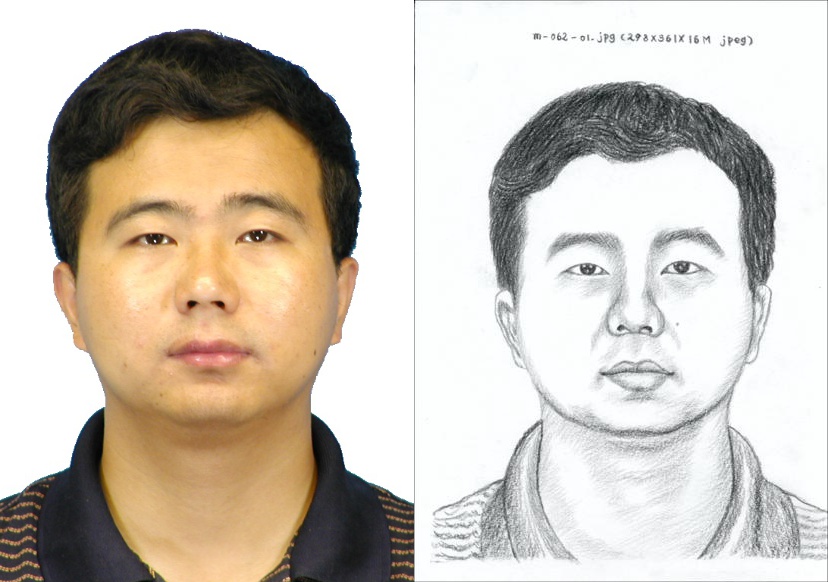 m-062-01.jpg (298X361X16M jpeg)